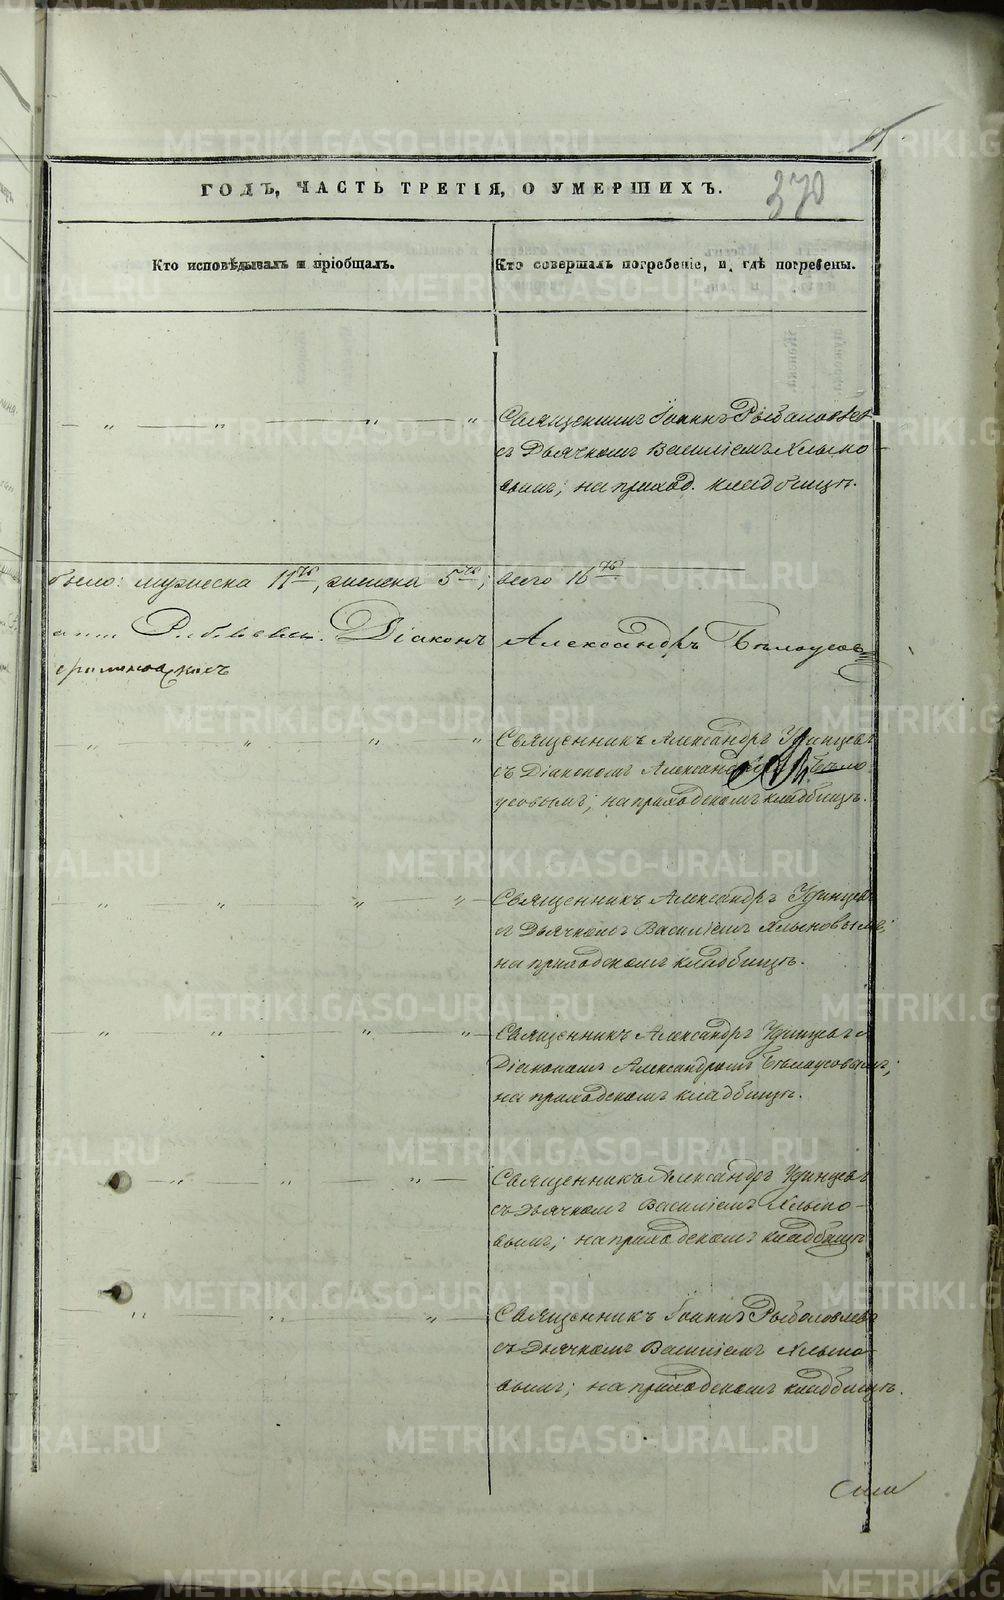 ГОДЪ, ЧАСТЬ ТРЕТІЯ, О УМЕРШИХЪ.
370
Кто исповѣдывалъ и пріобщалъ.
Кто совершалъ погребеніе, и гдѣ погребены.
Священникъ Іоаннъ Рыболовлев
съ Дьячкомъ Василіемъ Хлыно-
вымъ; на приход. кладбищѣ.
было: мужеска 11ть, женска 5ть; всего 16ть
Діаконъ Александръ Бѣлоусовъ
Священникъ Александръ Удинцевъ
съ Діакономъ Бѣло
усовымъ; на приходскомъ кладбищѣ.
Священникъ Александръ Удинцевъ
съ Дьячкомъ Василіемъ Хлыновымъ;
на приходскомъ кладбищѣ.
Священникъ Александръ Удинцевъ съ
Діакономъ Александромъ Бѣлоусовымъ;
на приходскомъ кладбищѣ.
Священникъ Александръ Удинцевъ
съ Дьячкомъ Василіемъ Хлыно-
вымъ; на приходскомъ кладбищѣ
Священникъ Іоаннъ Рыболовлевъ
съ Дьячкомъ Василіемъ Хлыно-
вымъ; на приходскомъ кладбищѣ.
METRIKI.GASO-URAL.RU